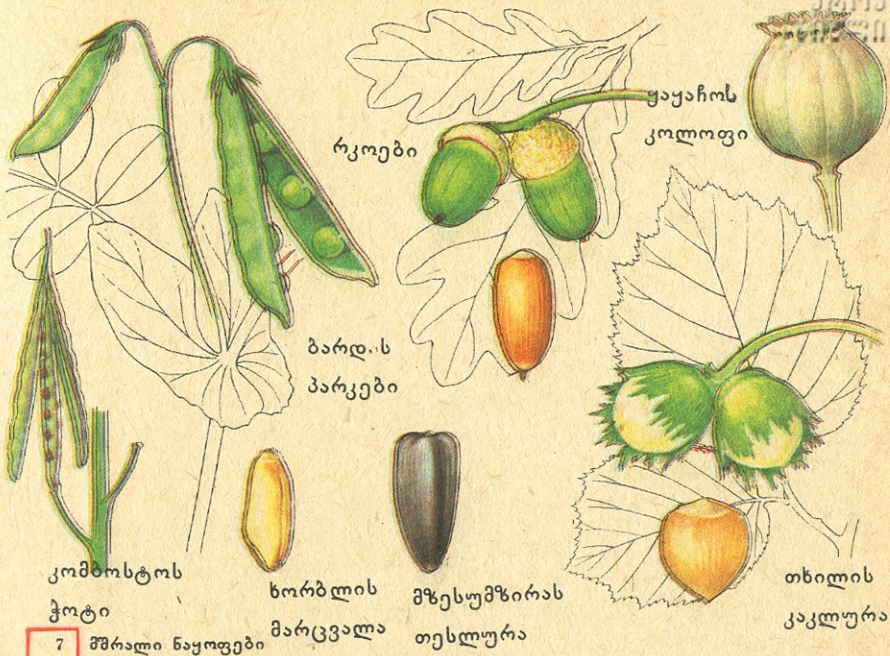 ყაყაჩოს
კოლოფი
რკოები
პარკები
კომბოსტოს
ჭოტი
ხორბლის
მარცვალა
მზესუმზირას
თესლურა
თხილის
კაკლურა
7 მშრალი ნაყოფები